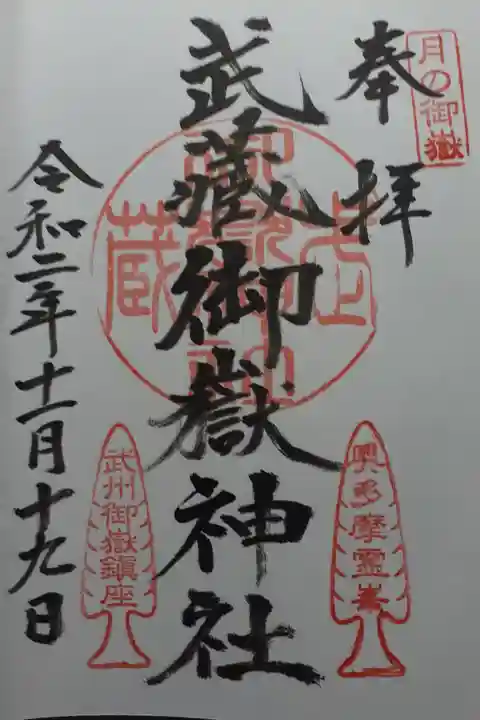 月の御嶽
奉拝
武蔵御嶽神社
令和二年十一月十九日
奥多摩霊峯
武州御嶽鎮座